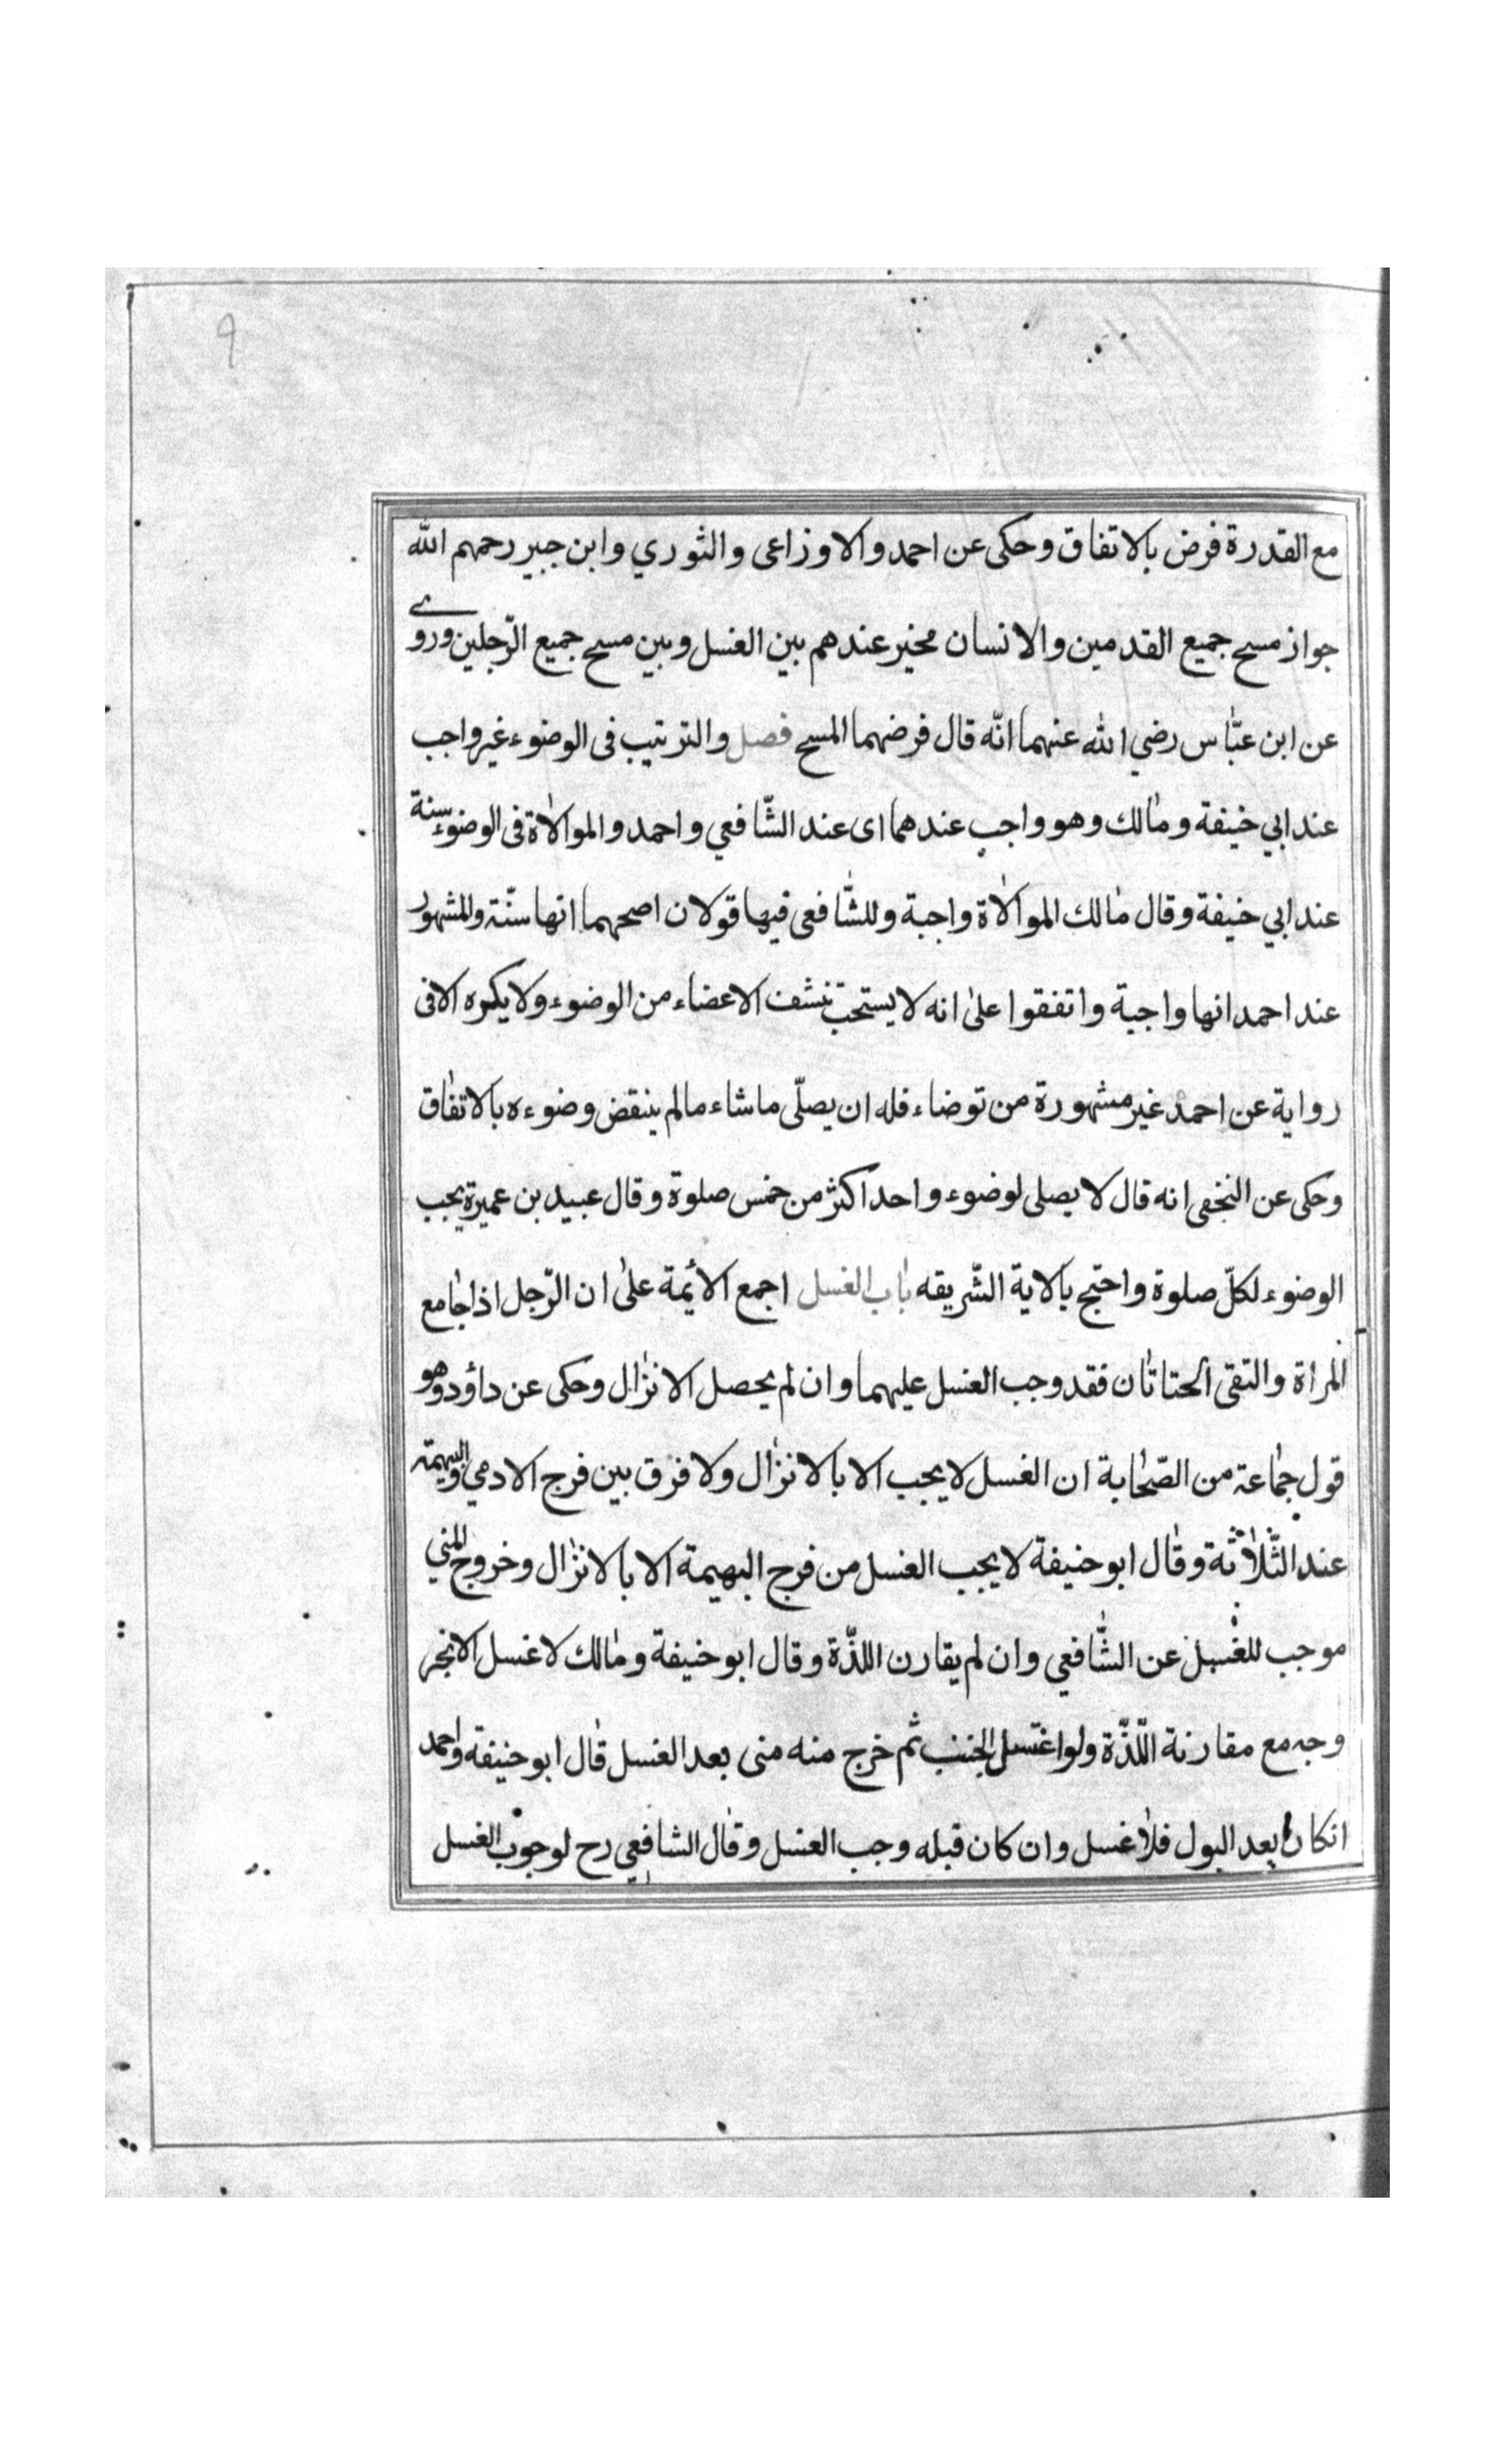 ٩
مع القدرة فرض بالاتفاق وحكى عن احمد والاوزاعى والثوري وابن جبير رحمهم الله
جواز مسح جميع القدمين والانسان مخير عندهم بين الغسل وبين مسح جميع الرّجلين وروى
عن ابن عبّاس رضي الله عنهما انّه قال فرضهما المسح فصل والترتيب فى الوضوء غير واجب
عند ابي حنيفة ومالك وهو واجب عندهما اى عند الشّافعي واحمد والموالاة فى الوضوء سنة
عند ابي حنيفة وقال مالك الموالاة واجبة وللشّافعى فيها قولان اصحهما انها سنّة والمشهور
عند احمد انها واجبة واتفقوا على انه لا يستحبّ تنشف الاعضاء من الوضوء ولا يكره الا فى
رواية عن احمد غير مشهورة من توضاء فله ان يصلّى ما شاء ما لم ينقض وضوءه بالاتفاق
وحكى عن النخفى انه قال لا يصلى لوضوء واحد اكثر من خمس صلوة وقال عبيد بن عميرة يجب
الوضوء لكلّ صلوة واحتج بالاية الشّريفه باب الغسل اجمع الأئمة على ان الرّجل اذا جامع
المراة والتقى الحتاتان فقد وجب الغسل عليهما وان لم يحصل الانزال وحكى عن داؤد وهو
قول جماعة من الصّحابة ان الغسل لا يجب الا بالانزال ولا فرق بين فرج الادمي والبهيمة
عند الثّلاثة وقال ابو حنيفة لا يجب الغسل من فرج البهيمة الا بالانزال وخروج المني
موجب للغسل عن الشّافعي وان لم يقارن اللذّة وقال ابو حنيفة ومالك لا غسل الا بخر
وجه مع مقارنة اللّذّة ولو اغتسل الجنب ثم خرج منه منى بعد الغسل قال ابو حنيفه واحمد
انكان بعد البول فلا غسل وان كان قبله وجب الغسل وقال الشافعي رح لوجوب الغسل